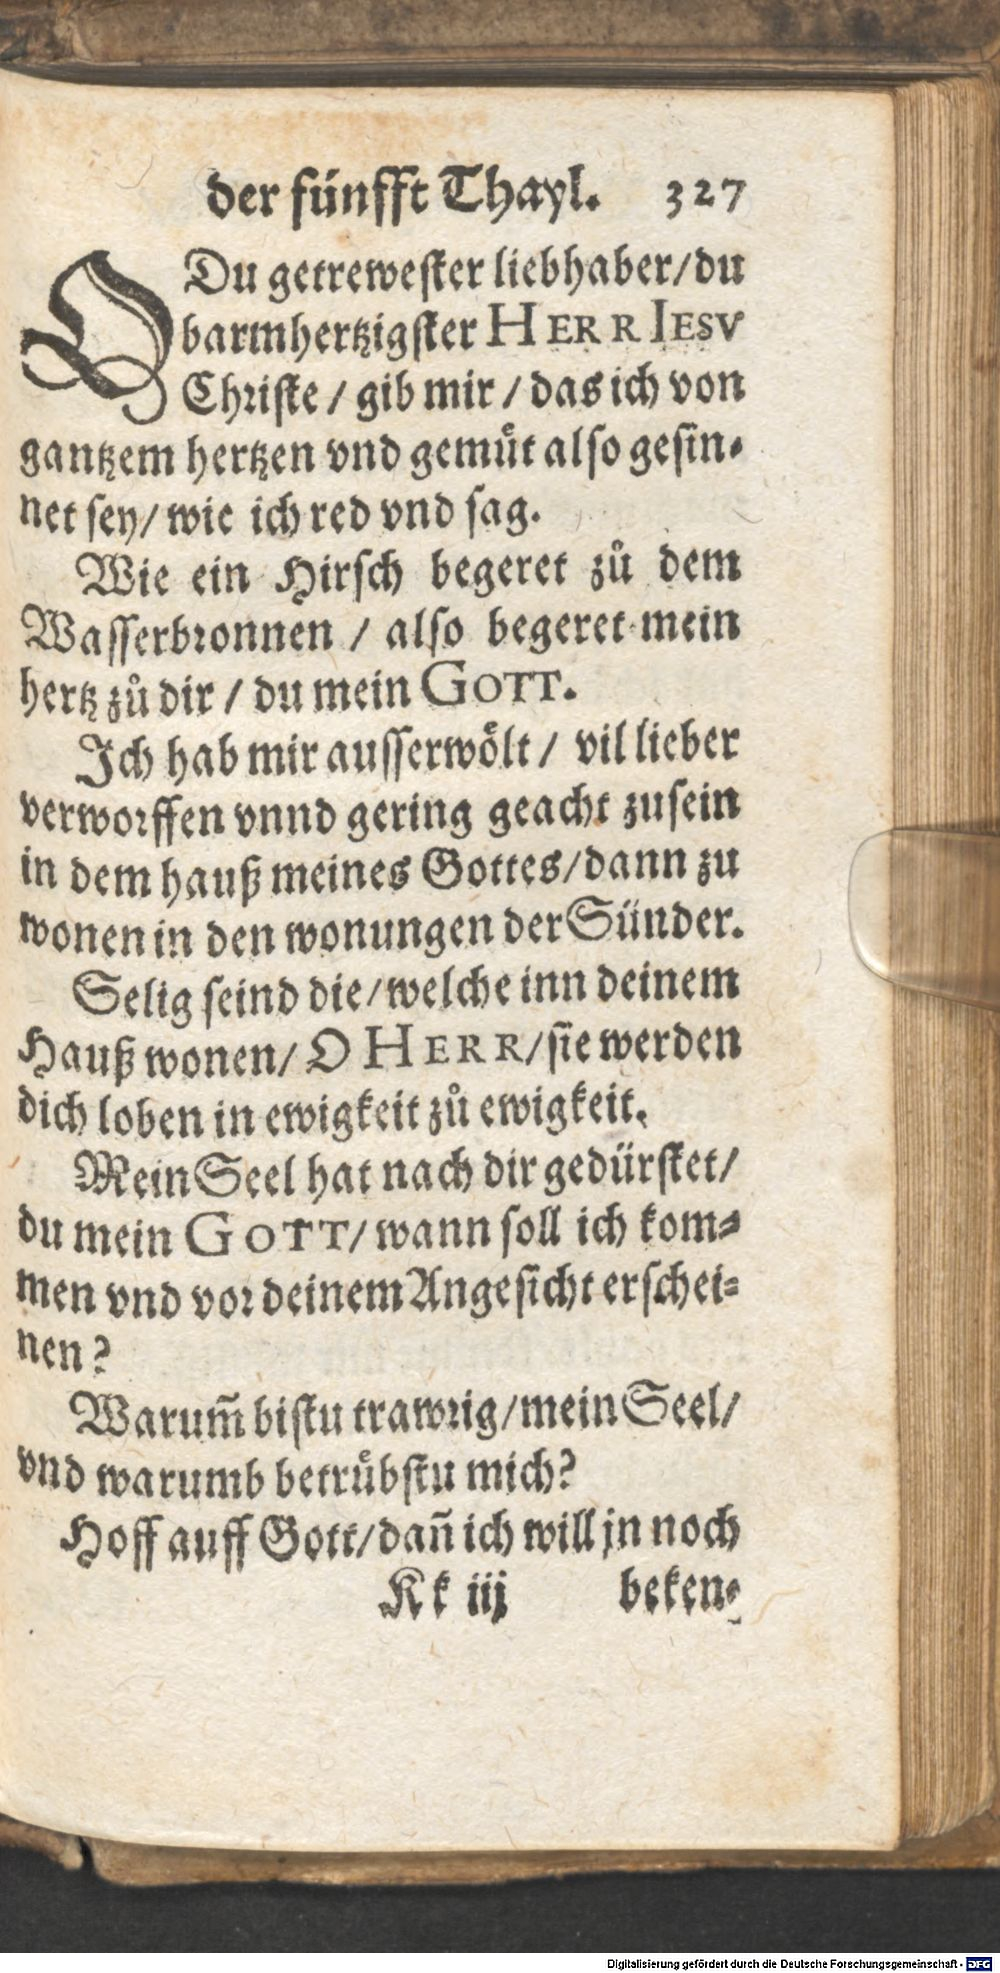 der fünfft Thayl. 327
ODu getrewester liebhaber/du
barmhertzigster HERR IESV
Christe / gib mir / das ich von
gantzem hertzen vnd gemuͤt also gesin-
net sey/ wie ich red vnd sag.
Wie ein Hirsch begeret zuͦ dem
Wasserbronnen / also begeret mein
hertz zuͦ dir / du mein GOTT.
Ich hab mir ausserwoͤlt / vil lieber
verworffen vnnd gering geacht zusein
in dem hauß meines Gottes/dann zu
wonen in den wonungen der Sünder.
Selig seind die/welche inn deinem
Hauß wonen/ O HERR/sie werden
dich loben in ewigkeit zuͦ ewigkeit.
Mein Seel hat nach dir gedürstet/
du mein GOTT/ wann soll ich kom-
men vnd vor deinem Angesicht erschei-
nen?
Warum̃ bistu trawrig/mein Seel/
vnd warumb betruͤbstu mich?
Hoff auff Gott/dañ ich will jn noch
Kk iij beken-
Digitalisierung gefördert durch die Deutsche Forschungsgemeinschaft - DFG